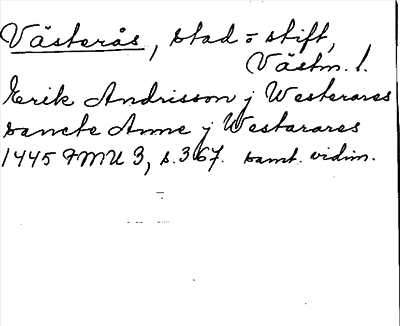 Västerås, stad o stift,
Västm. l.
Erik Andrisson j Westerares
sancte Anne j Westarares
1445 FMU 3, s. 367. samt. vidim.